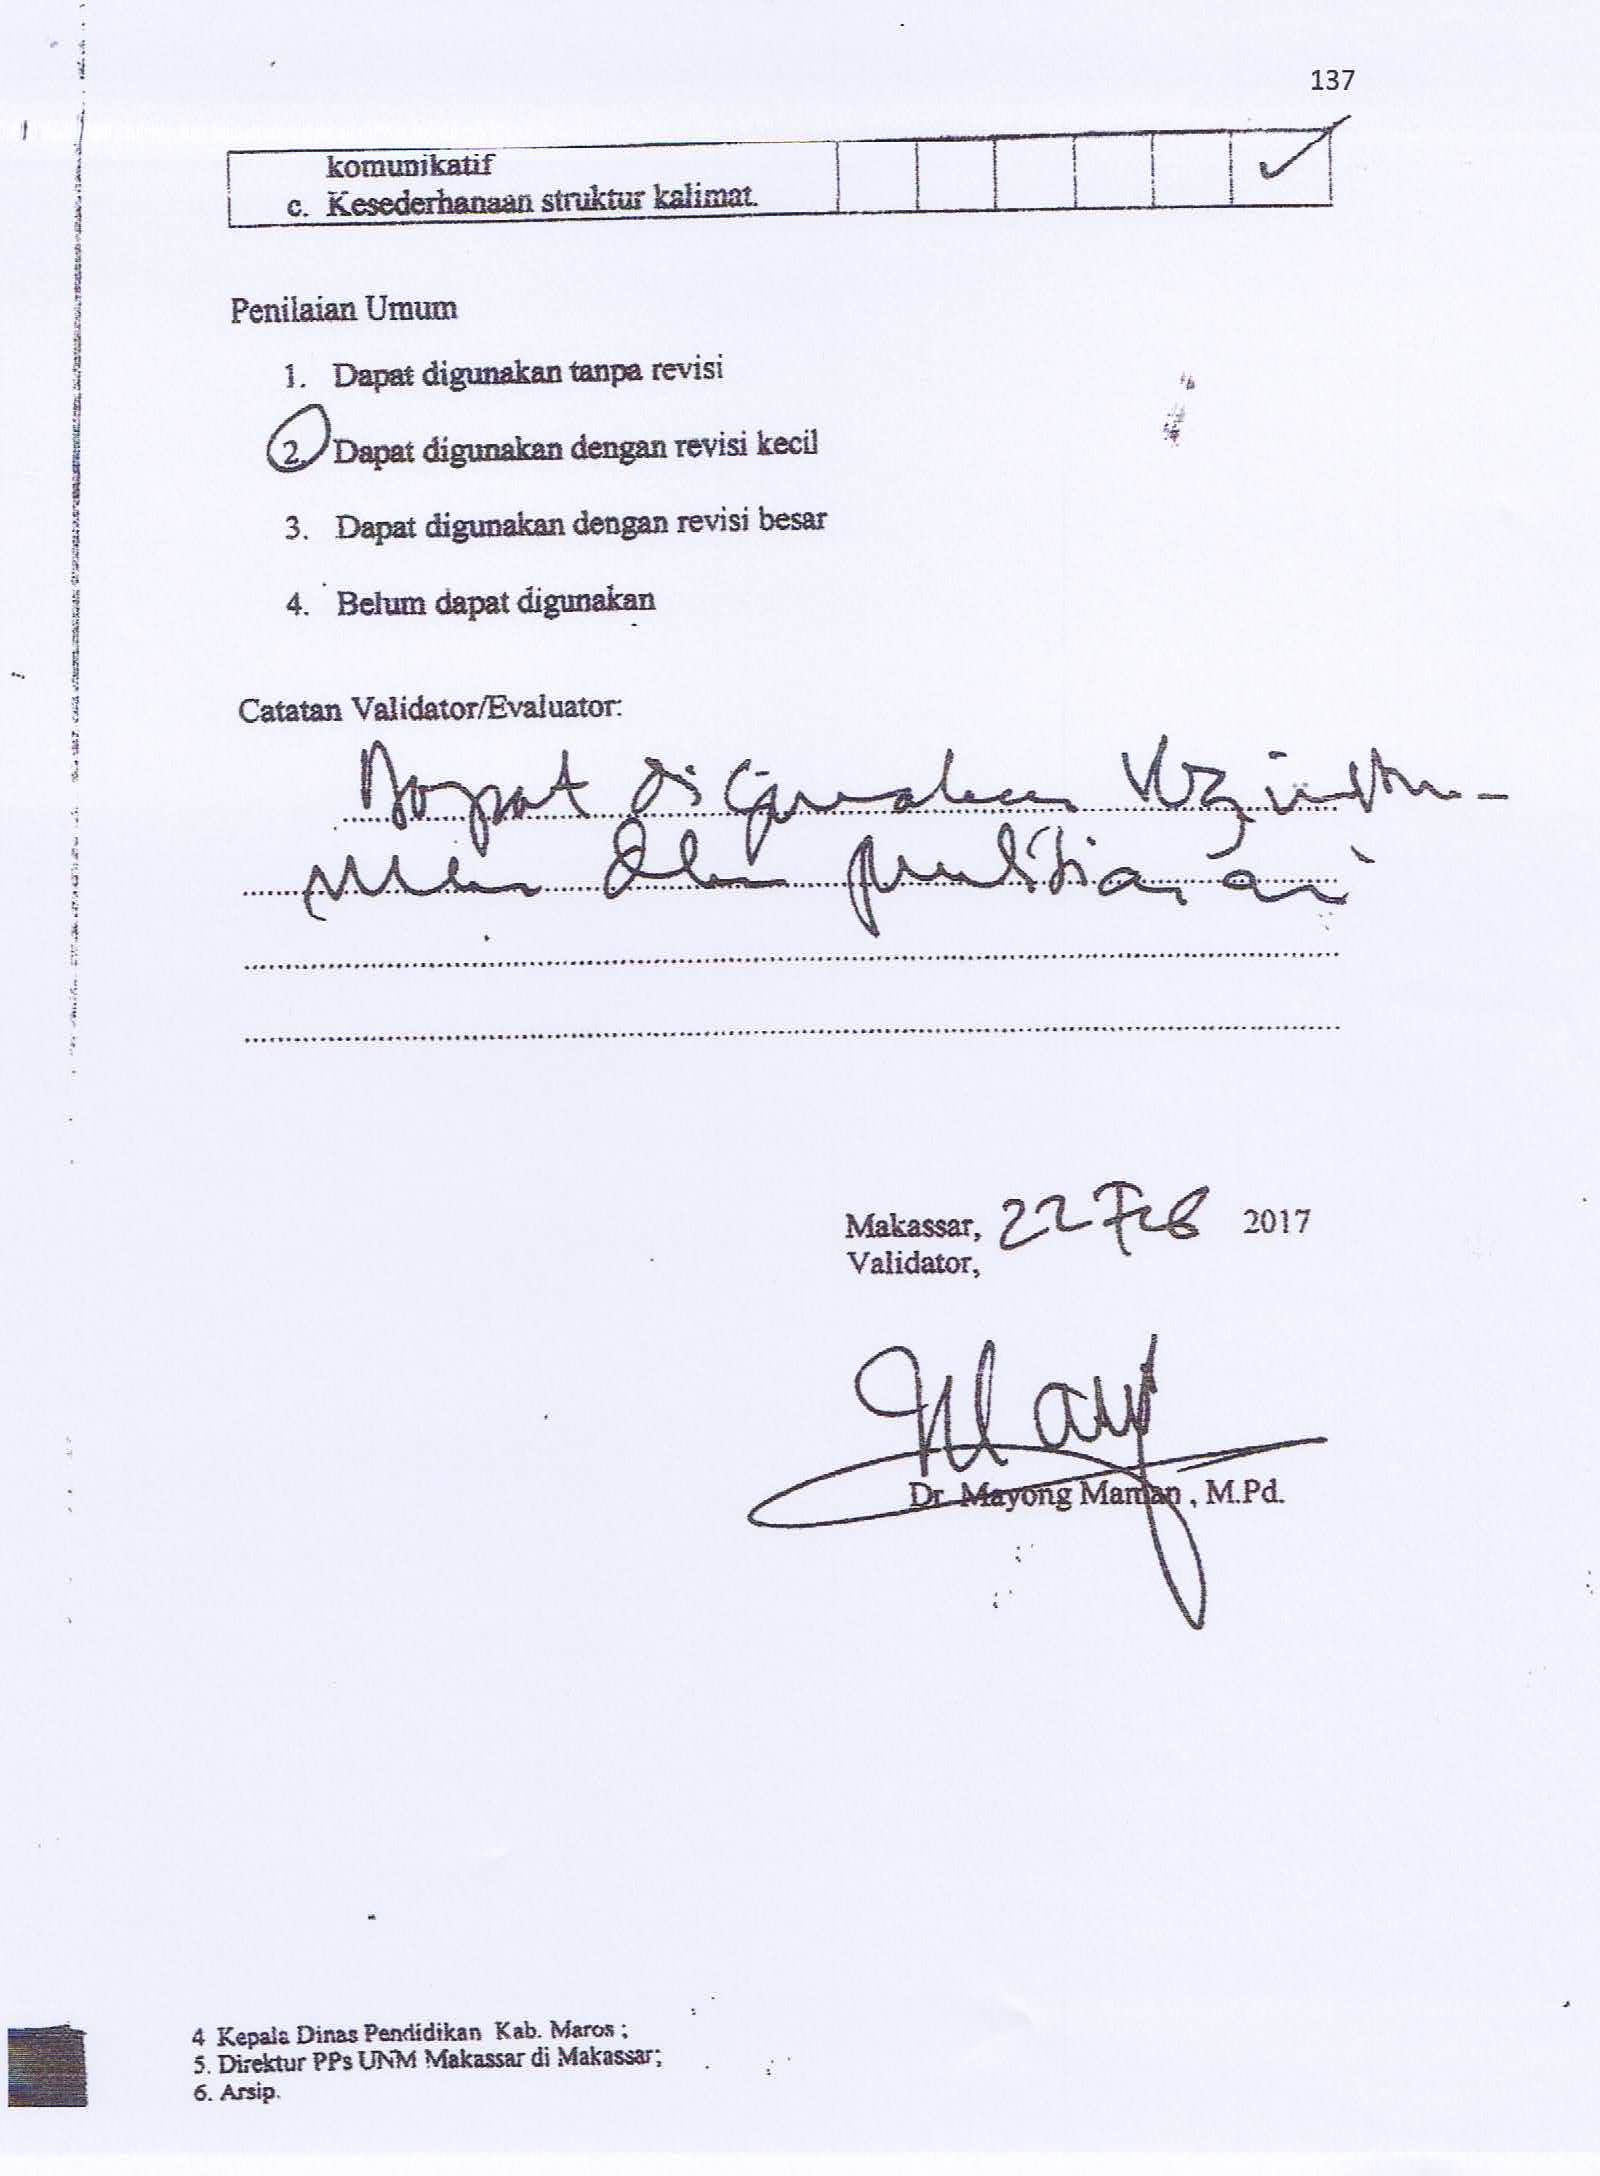 137
komunikatif
c. Kesederhanaan struktur kalimat.
Penilaian Umum
1. Dapat digunakan tanpa revisi
2. Dapat digunakan dengan revisi kecil
3. Dapat digunakan dengan revisi besar
4. Belum dapat digunakan
Catatan Validator/Evaluator:
Dapat digunakan sbg instru-
men dlm penelitian ini
Makassar, 22 Feb 2017
Validator,
May
Dr. Mayong Maman , M.Pd.
4 Kepala Dinas Pendidikan Kab. Maros ;
5. Direktur PPs UNM Makassar di Makassar;
6. Arsip.